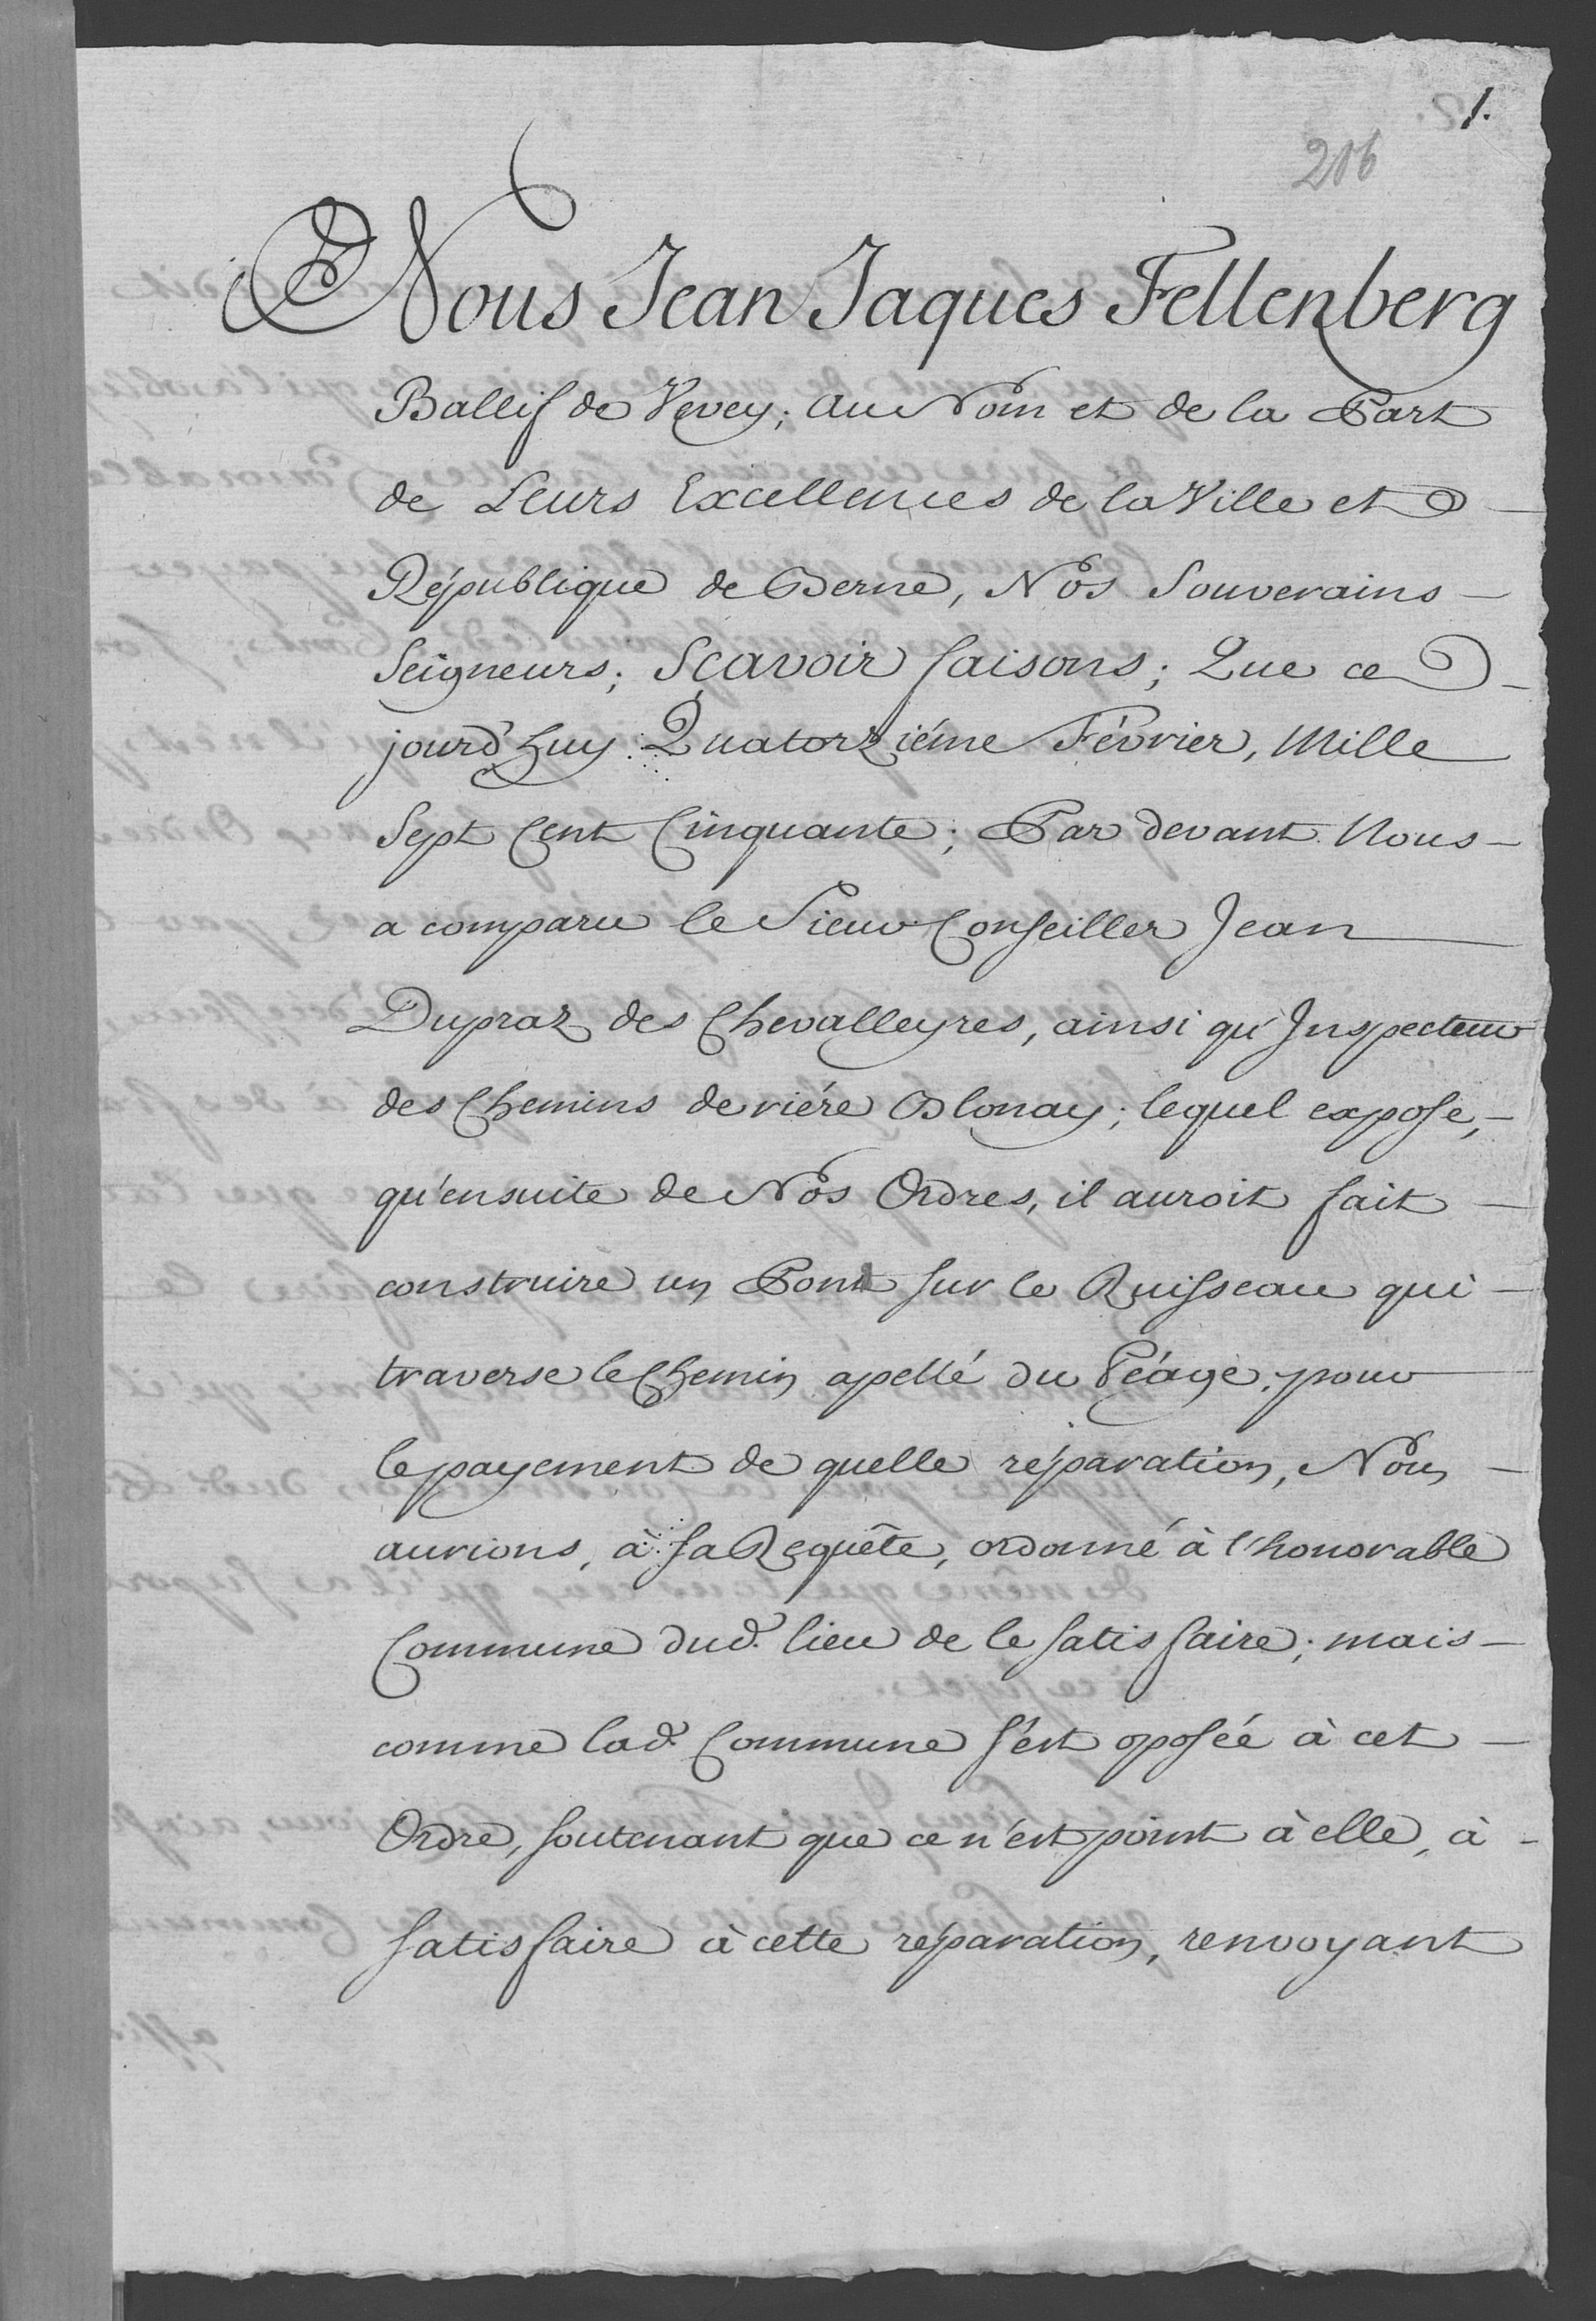 1.
206
Nous Jean Jaques Fellenberg
Ballif de Vevey; au Nom et de la Part
de Leurs Excellences de la Ville et
République de Berne, Nos Souverains
Seigneurs; Sçavoir faisons; Que ce
jourd'huy Quatorziéme Février, Mille
Sept Cent Cinquante; Par devant Nous
a comparu le Sieur Conseiller Jean
Dupraz des Chevalleyres, ainsi qu'Inspecteur
des Chemins deriére Blonay; lequel expose,
qu'ensuite de Nos Ordres, il auroit fait
construire un Pont sur le Ruisseau qui
traverse le Chemin apellé du Péage; pour
le payement de quelle réparation, Nous
aurions, à sa Requête, ordonné à l'honorable
Commune dud. lieu de le satisfaire; mais
comme lad. Commune s'est oposée à cet
Ordre, soutenant que ce n'est point à elle, à
satisfaire à cette réparation, renvoyant